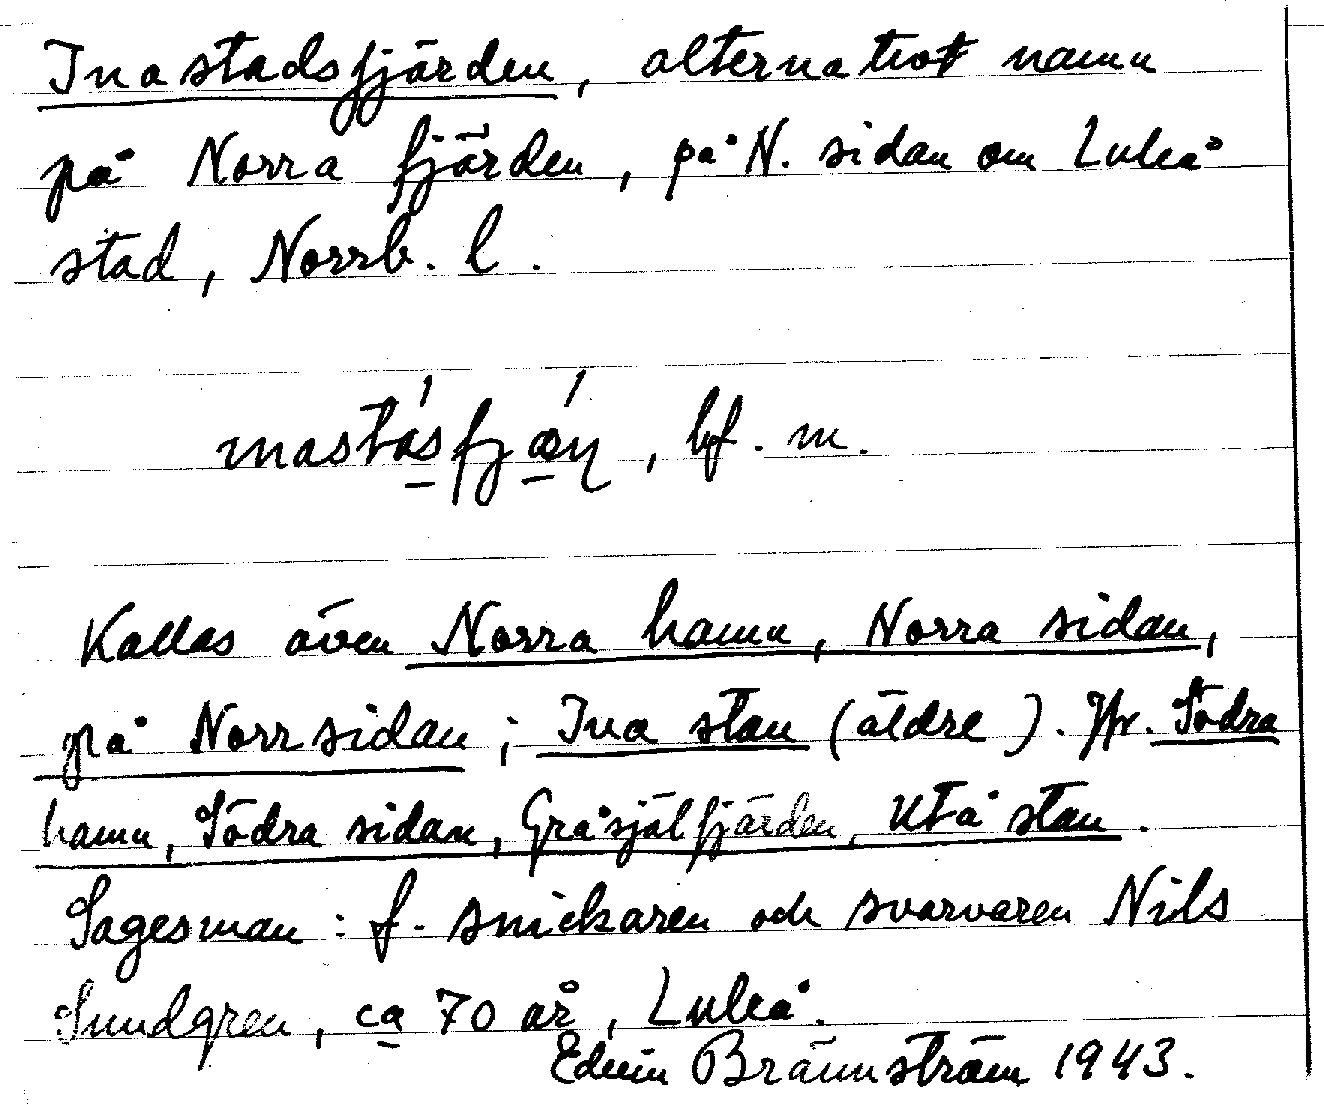 Inastadsfjärden, alternativt namn
på Norra fjärden, på N. sidan om Luleå
stad, Norrb. l.
bf. m.
Kallas även Norra hamn, Norra sidan,
på Norrsidan; Ina stan (äldre). Jfr. Södra
hamn, Södra sidan, Gråsjälfjärden, Utå stan.
Sagesman: f. snickaren och svarvaren Nils
Sundgren, ca 70 år, Luleå.
Edvin Brännström 1943.